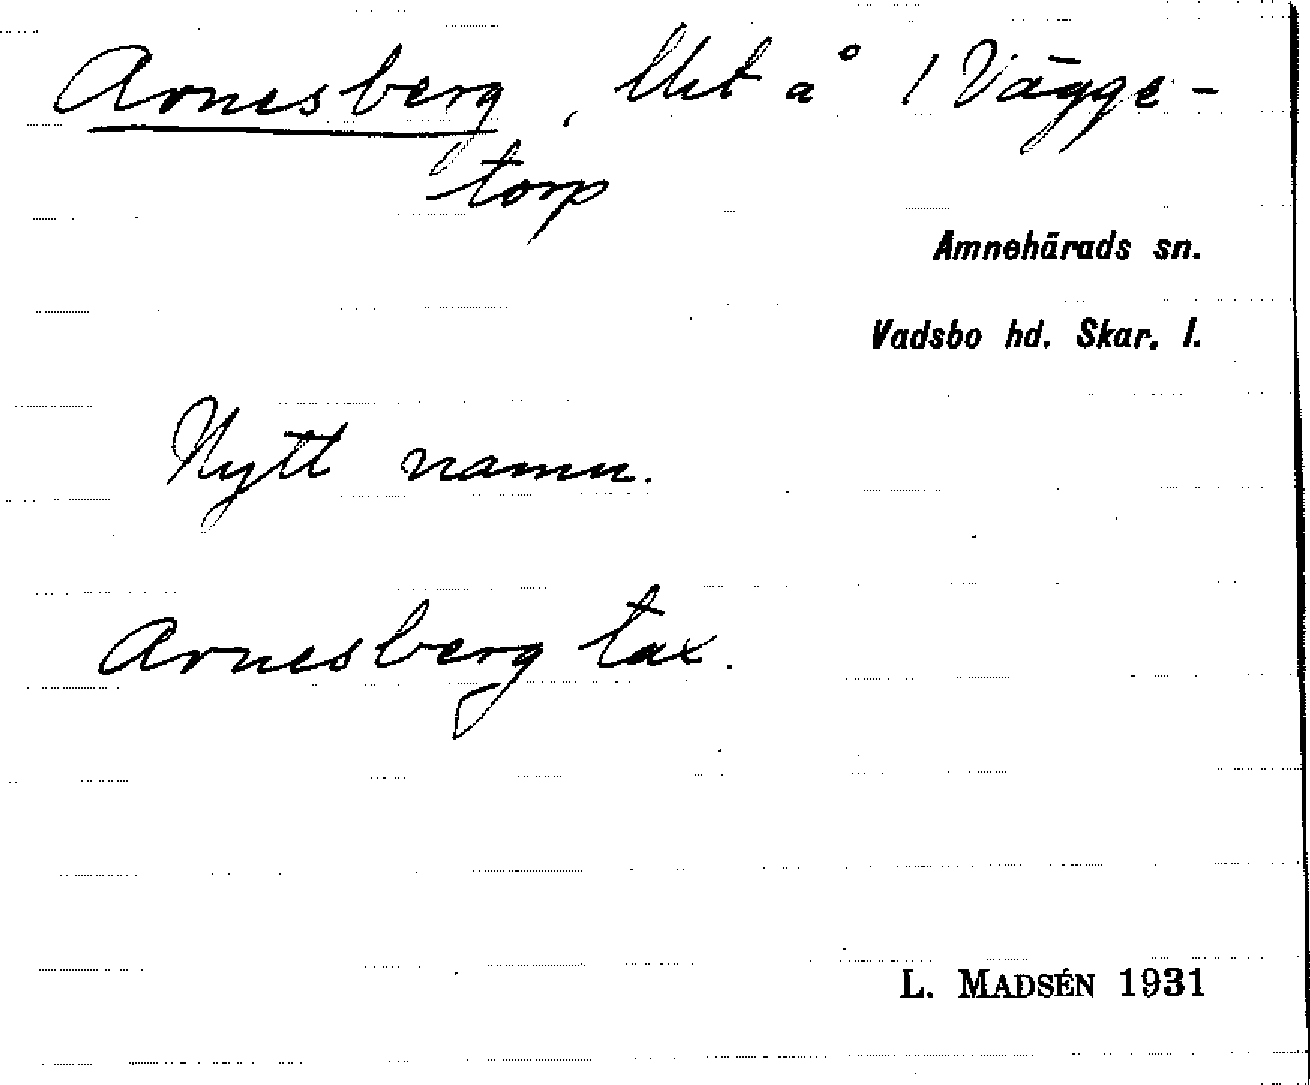 Arnesberg, lht å 1 Vägge-
torp
Amnehärads sn.
Vadsbo hd. Skar. l.
Nytt namn.
Arnesberg tax.
L. MADSÉN 1931